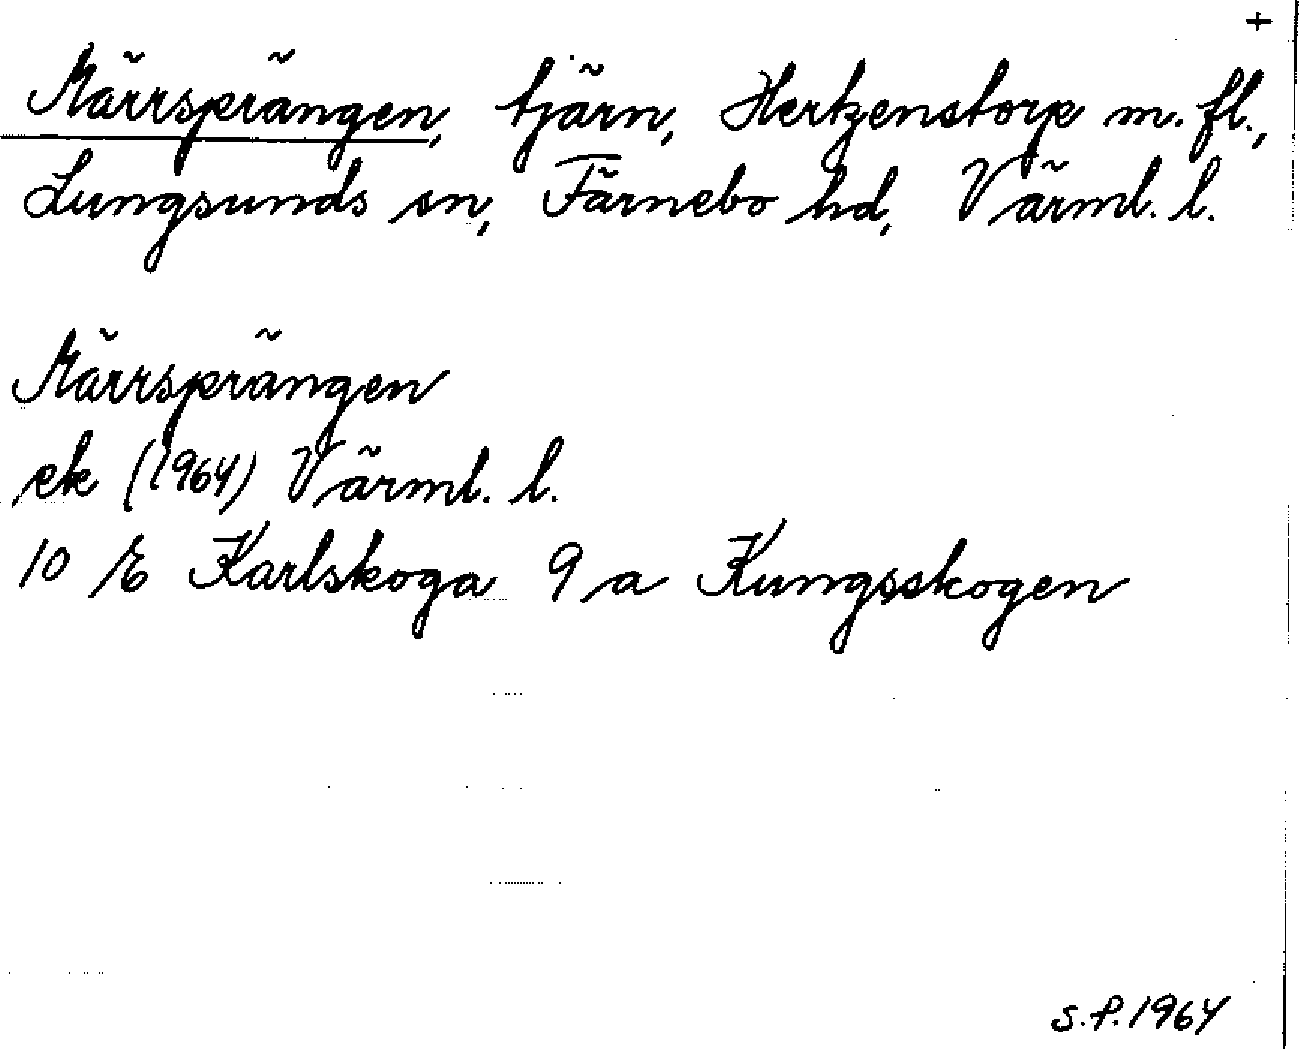 +
Märrsprängen, tjärn, Hertzenstorp m. fl.,
Lungsunds sn, Färnebo hd, Värml. l.
Märrsprängen
ek (1964) Värml. l.
10 E Karlskoga 9 a Kungsskogen
S.P. 1964